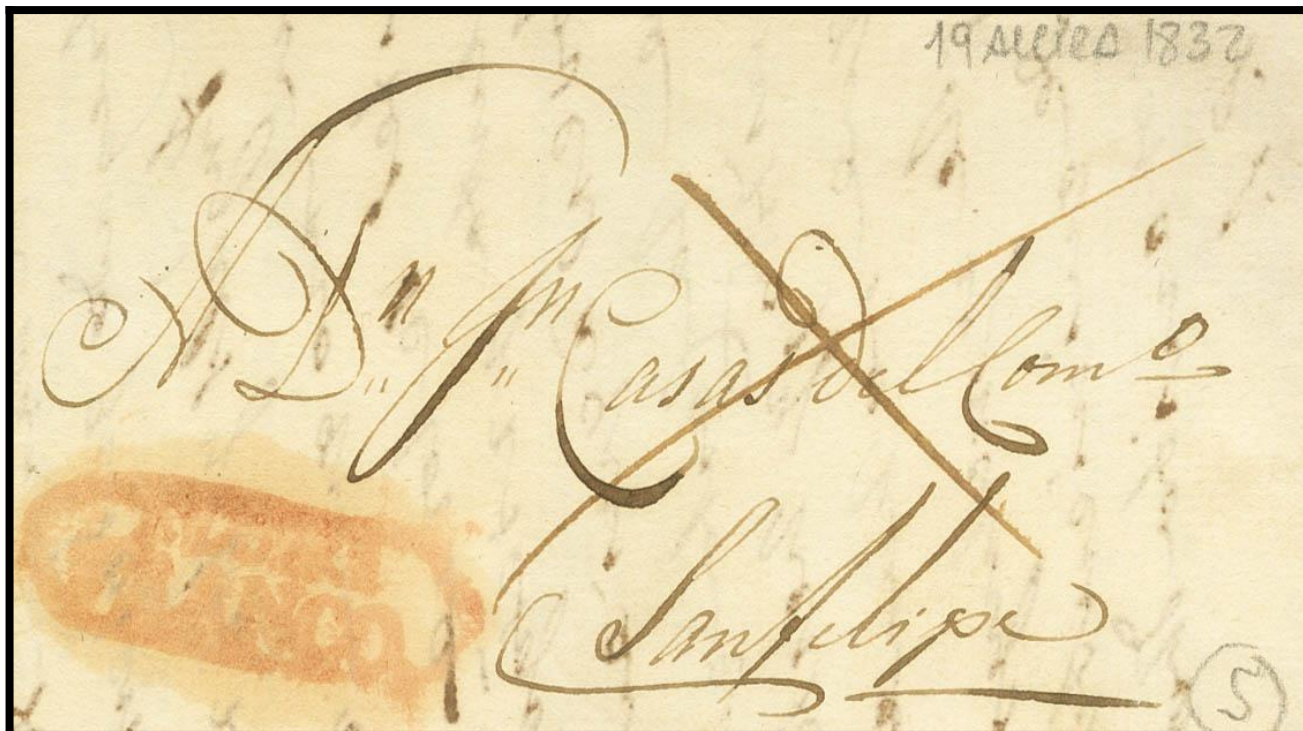 19 1832
A Dn Jn Casas del Como
San felipe
5